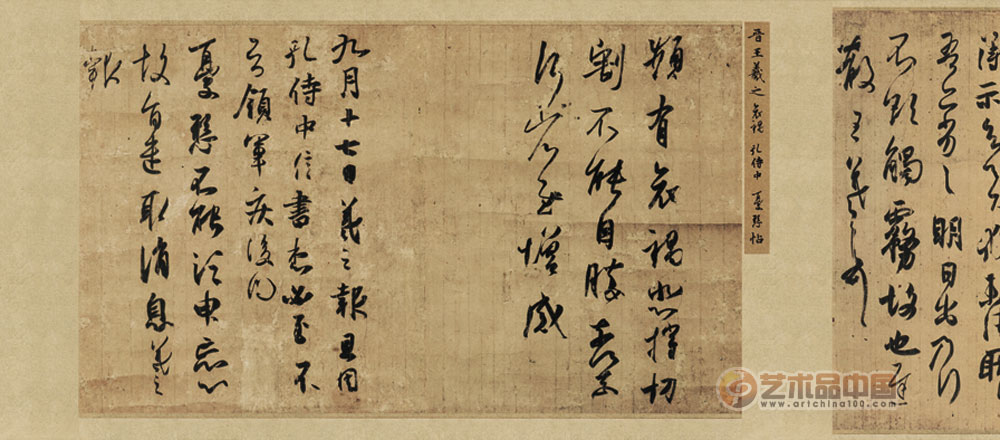 得示知足下猶未佳耿
吾亦劣劣明日出乃行
不欲觸霧故也遲
散王羲之頓首
晉王羲之 哀禍 孔侍中 憂懸帖
頻有哀禍悲摧切
割不能自勝奈何
奈何省慰增感
九月十七日羲之報且因
孔侍中信書想必至不
知領軍疾後問
憂懸不能須臾忘心
故旨遣取消息羲之
報
艺术品中国
www.artchina100.com